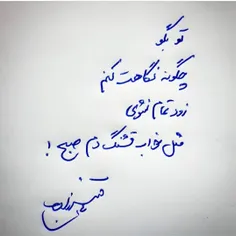 تو بگو
چگونه نگاهت کنم
زود تمام نشوی
مثل خواب قشنگ دم صبح !